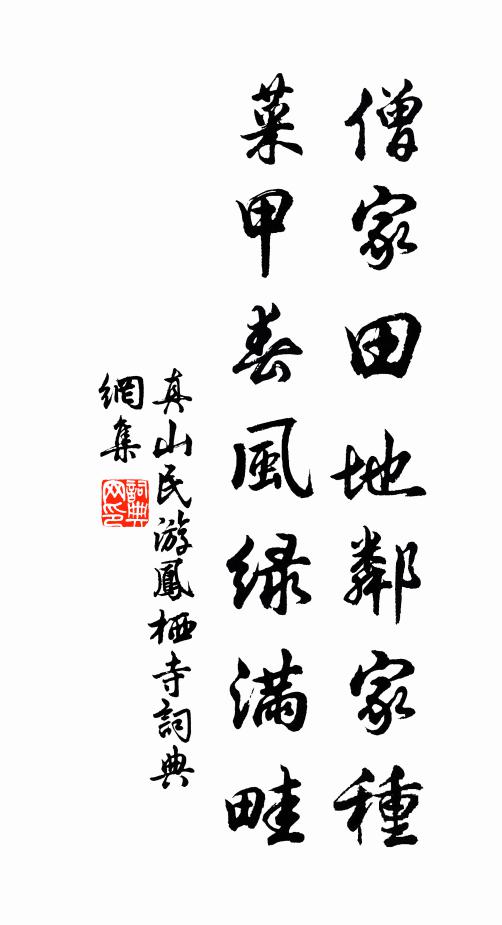 僧家田地鄰家種
菜甲春風緑滿畦
真山民游鳳栖寺詞典
網集
詞典網印